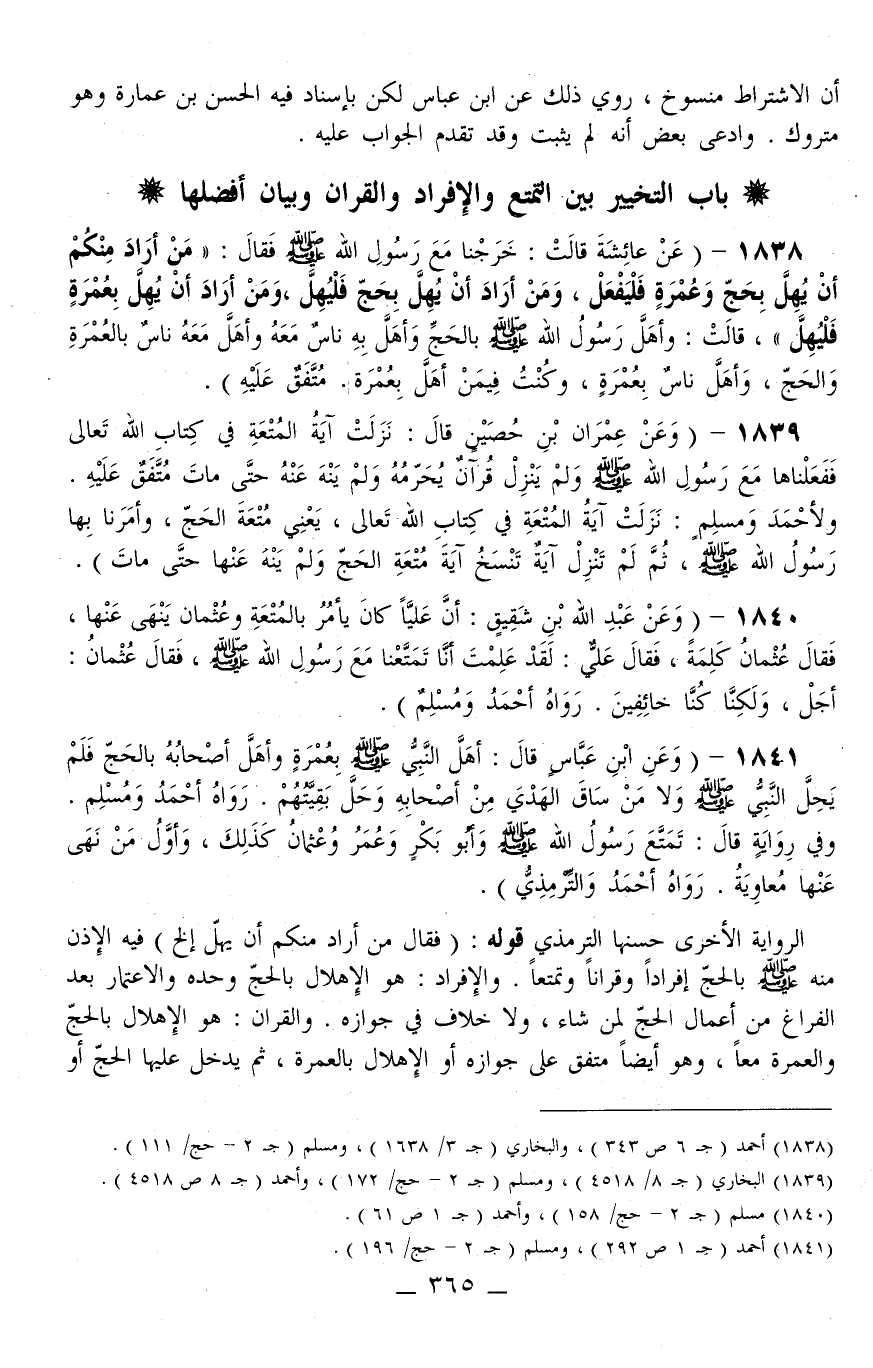 أن الاشتراط منسوخ ، روي ذلك عن ابن عباس لكن بإسناد فيه الحسن بن عمارة وهو
متروك . وادعى بعض أنه لم يثبت وقد تقدم الجواب عليه .
باب التخيير بين التمتع والإفراد والقران وبيان أفضلها
١٨٣٨ – ( عَنْ عائِشَةَ قالَتْ : خَرَجْنا مَعَ رَسُولِ الله ﷺ فَقالَ : « مَنْ أرَادَ مِنْكُمْ
أنْ يُهِلَّ بِحَجّ وَعُمْرَةٍ فَلْيَفْعَلْ ، وَمَنْ أرَادَ أنْ يُهِلَّ بِحَجّ فَلْيُهِلَّ ،وَمَنْ أرَادَ أنْ يُهِلَّ بِعُمْرَةٍ
فَلْيُهِلَّ » ، قالَتْ : وأهَلَّ رَسُولُ الله ﷺ بالحَجِّ وَأهَلَّ بِهِ ناسٌ مَعَهُ وأهَلَّ مَعَهُ ناسٌ بالعُمْرَةِ
وَالحَجّ ، وَأهَلَّ ناسٌ بِعُمْرَةٍ ، وكُنْتُ فِيمَنْ أهَلَّ بِعُمْرَة . مُتَّفَقٌ عَلَيْهِ ) .
١٨٣٩ – ( وَعَنْ عِمْرَان بْنِ حُصَيْنٍ قالَ : نَزَلَتْ آيَةُ المُتْعَةِ في كِتابِ الله تَعالى
فَفَعَلْناها مَعَ رَسُولِ الله ﷺ وَلمْ يَنْزِلْ قُرآنٌ يُحَرّمُهُ وَلمْ يَنْهَ عَنْهُ حتَّى ماتَ مُتَّفَقٌ عَلَيْهِ .
ولأحْمَدَ وَمسلِمٍ : نَزَلَتْ آيَةُ المُتْعَةِ في كِتابِ الله تَعالى ، يَعْنِي مُتْعَةَ الحَجّ ، وأمَرَنا بِها
رَسُولُ الله ﷺ ، ثُمَّ لَمْ تَنْزِلْ آيَةٌ تَنْسَخُ آيَةَ مُتْعَةِ الحَجّ وَلمْ يَنْهَ عَنْها حتَّى ماتَ ) .
١٨٤٠ – ( وَعَنْ عَبْدِ الله بْنِ شَقِيقٍ : أنَّ عَليَّاً كانَ يأمُرُ بالمُتْعَةِ وعُثْمان يَنْهَى عَنْها ،
فَقالَ عُثْمانُ كَلِمَةً ، فَقالَ عَليٌّ : لَقَدْ عَلِمْتَ أنَّا تَمَتَّعْنا مَعَ رَسُولِ الله ﷺ ، فَقالَ عُثْمانُ :
أجَلْ ، وَلَكِنَّا كُنَّا خائِفِينَ . رَوَاهُ أحْمَدُ وَمُسْلِمٌ ) .
١٨٤١ – ( وَعَنِ ابْنِ عَبَّاسٍ قالَ : أهَلَّ النَّبِيُّ ﷺ بِعُمْرَةٍ وأهَلَّ أصْحابُهُ بالحَجّ فَلَمْ
يَحِلَّ النَّبِيُّ ﷺ وَلا مَنْ ساقَ الهَدْيَ مِنْ أصْحابِهِ وَحَلَّ بَقِيَّتُهُمْ . رَوَاهُ أحْمَدُ وَمُسْلِم .
وفي رِوَايَةٍ قالَ : تَمَتَّعَ رَسُولُ الله ﷺ وَأبُو بَكْرٍ وَعُمَرُ وُعْثمانُ كَذَلِكَ ، وَأوَّلُ مَنْ نَهَى
عَنْها مُعاوِيَةُ . رَوَاهُ أحْمَدُ وَالتِّرْمِذِيُّ ) .
الرواية الأخرى حسنها الترمذي قوله : ( فقال من أراد منكم أن يهلّ إلخ ) فيه الإذن
منه ﷺ بالحجّ إفراداً وقراناً وتمتعاً . والإفراد : هو الإهلال بالحجّ وحده والاعتمار بعد
الفراغ من أعمال الحجّ لمن شاء ، ولا خلاف في جوازه . والقران : هو الإهلال بالحجّ
والعمرة معاً ، وهو أيضاً متفق على جوازه أو الإهلال بالعمرة ، ثم يدخل عليها الحجّ أو
(١٨٣٨) أحمد ( جـ ٦ ص ٣٤٣ ) ، والبخاري ( جـ ٣/ ١٦٣٨ ) ، ومسلم ( جـ ٢ – حج/ ١١١ ) .
(١٨٣٩) البخاري ( جـ ٨/ ٤٥١٨ ) ، ومسلم ( جـ ٢ – حج/ ١٧٢ ) ، وأحمد ( جـ ٨ ص ٤٥١٨ ) .
(١٨٤٠) مسلم ( جـ ٢ – حج/ ١٥٨ ) ، وأحمد ( جـ ١ ص ٦١ ) .
(١٨٤١) أحمد ( جـ ١ ص ٢٩٢ ) ، ومسلم ( جـ ٢ – حج/ ١٩٦ ) .
– ٣٦٥ –